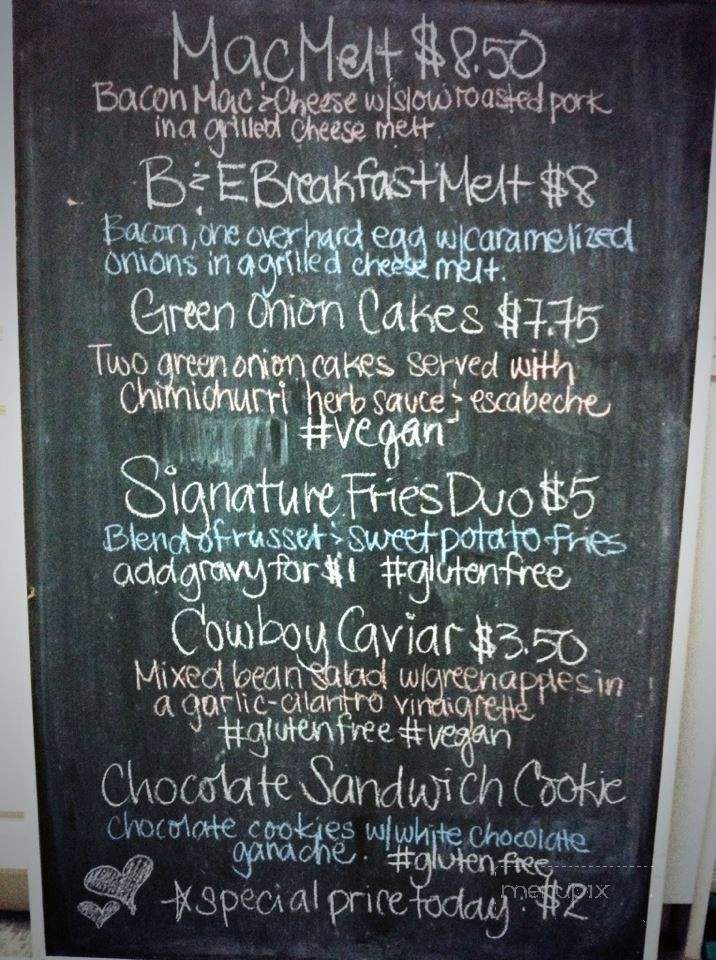 MacMelt $8.50
Bacon Mac & Cheese w/slow roasted pork
in a grilled cheese melt
B & E Breakfast Melt $8
Bacon, one over hard egg w/caramelized
onions in a grilled cheese melt.
Green Onion Cakes $7.75
Two green onion cakes served with
chimichurri herb sauce & escabeche
#vegan
Signature Fries Duo $5
Blend of russet & sweet potato fries
add gravy for $1 #glutenfree
Cowboy Caviar $3.50
Mixed bean salad w/green apples in
a garlic-cilantro vinaigrette
#glutenfree #vegan
Chocolate Sandwich Cookie
chocolate cookies w/white chocolate
ganache. #glutenfree
*special price today. $2
menupix